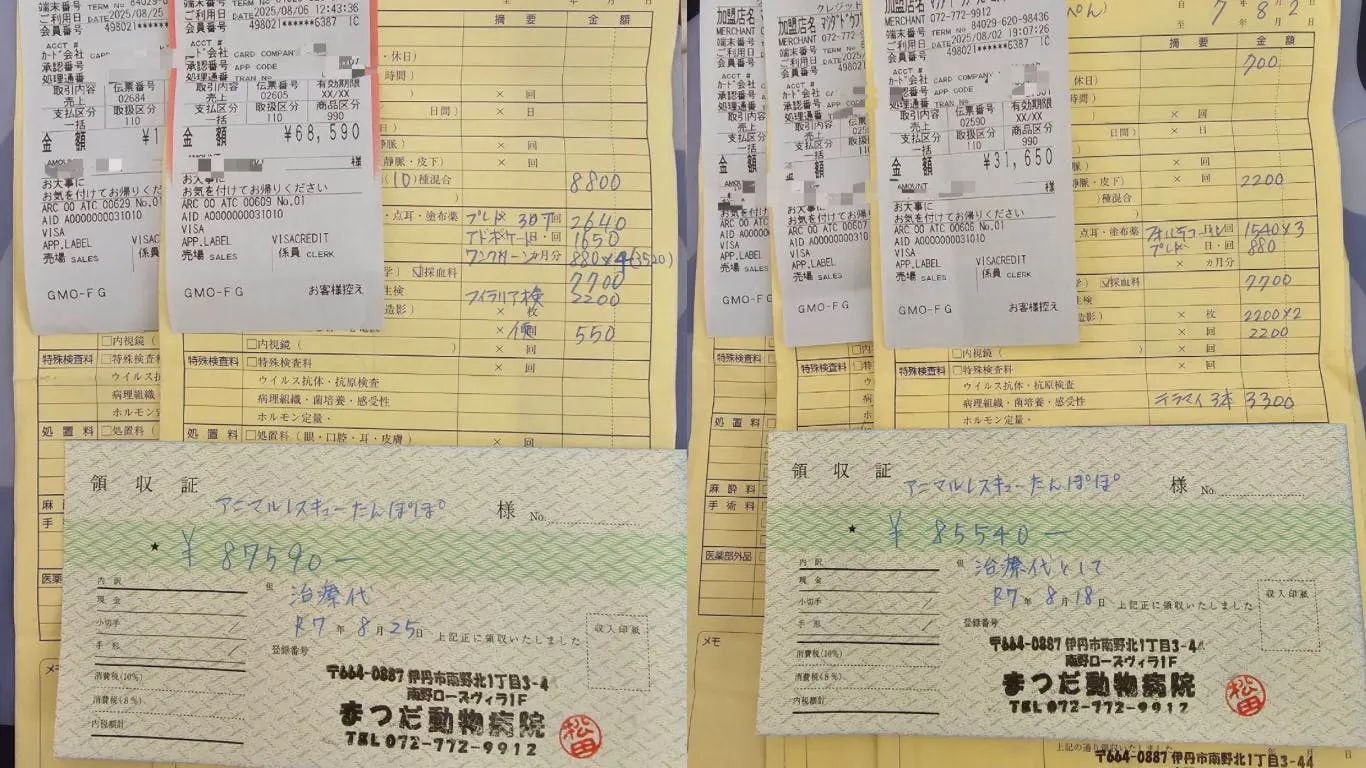 端末番号 TERM No 84029-6
ご利用日 2025/08/25
会員番号 498021
ACCT #
カード会社
承認番号
処理通番
取引内容 伝票番号
売上 02684
支払区分 取扱区分
一括 110
金 額 ¥1
AMOUNT
お大事に
お気を付けてお帰りくだ
ARC 00 ATC 00629 No.01
AID A0000000031010
VISA
APP.LABEL VISAC
売場 SALES 係員
GMO-FG
端末番号 TERM No
ご利用日 2025/08/06 12:43:36
会員番号 498021******6387 IC
ACCT #
カード会社 CARD COMPANY
承認番号 APP CODE
処理通番 TRAN No
取引内容 伝票番号 有効期限
売上 02605 XX/XX
支払区分 取扱区分 商品区分
一括 110 990
金 額 ¥68,590
様
お大事に
お気を付けてお帰りください
ARC 00 ATC 00609 No.01
AID A0000000031010
VISA
APP.LABEL VISACREDIT
売場 SALES 係員 CLERK
GMO-FG お客様控え
年 月 日
摘 要 金 額
・休日)
時間)
× 回
日間) × 日
静脈・皮下) × 回
(10)種混合 8800
・点耳・塗布薬 プレド 30T 回 2640
アドボケート 日・回 1650
ワンクリーン ヵ月分 880×4(3520)
☑採血料 7700
生検 フィラリア検 2200
造影) × 枚
便 回 550
□内視鏡 ( ) × 回
特殊検査料 □特殊検査料 × 回
ウイルス抗体・抗原検査
病理組織・菌培養・感受性
ホルモン定量・
処 置 料 □処置料 (眼・口腔・耳・皮膚) × 回
領 収 証
アニマルレスキューたんぽぽ 様 No.
★ ¥ 87590—
内 訳
但 治療代
現 金
小切手
手 形
R7 年 8 月 25 日 上記正に領収いたしました
登録番号
収入印紙
消費税(10%)
消費税(8%)
内税額計
〒664-0887 伊丹市南野北1丁目3-4
南野ローズヴィラ1F
まつだ動物病院
TEL 072-772-9912
松田
加盟店名
MERCHANT
端末番号
ご利用日
会員番号
GMO-FG
クレジット
加盟店名 マツダドウブツ
MERCHANT 072-772-9
GMO-FG
加盟店名
MERCHANT 072-772-9912
端末番号 TERM No 84029-620-98436
ご利用日 2025/08/02 19:07:26
会員番号 498021******6387 IC
ACCT #
カード会社 CARD COMPANY
承認番号 APP CODE
処理通番 TRAN No
取引内容 伝票番号 有効期限
売上 02590 XX/XX
支払区分 取扱区分 商品区分
一括 110 990
金 額 ¥31,650
AMOUNT 様
お大事に
お気を付けてお帰りください
ARC 00 ATC 00606 No.01
AID A0000000031010
VISA
APP.LABEL VISACREDIT
売場 SALES 係員 CLERK
GMO-FG お客様控え
ぺん)
自 7 年 8 月 2
至 年 月
摘 要 金 額
700
休日)
時間)
× 回
日間) × 日
静脈・皮下) × 回 2200
)種混合
・点耳・塗布薬 1540×3
プレドー 日・回 880
× ヵ月分
☑採血料 7700
生検
造影) × 枚 2200×2
× 回 2200
□内視鏡 ( ) × 回
特殊検査料 □特殊検査料 × 回
ウイルス抗体・抗原検査
病理組織・菌培養・感受性 テラマイ 3本 3300
ホルモン定量・
処 置 料
麻 酔 料
手 術 料
医薬部外品
メモ
領 収 証
アニマルレスキューたんぽぽ 様 No.
★ ¥ 85540—
内 訳
但 治療代として
現 金
小切手
手 形
R7 年 8 月 18 日 上記正に領収いたしました
登録番号
収入印紙
消費税(10%)
消費税(8%)
内税額計
〒664-0887 伊丹市南野北1丁目3-4
南野ローズヴィラ1F
まつだ動物病院
TEL 072-772-9912
松田
上記の通り領収いたしました
〒664-0887 伊丹市南野北1丁目3-44